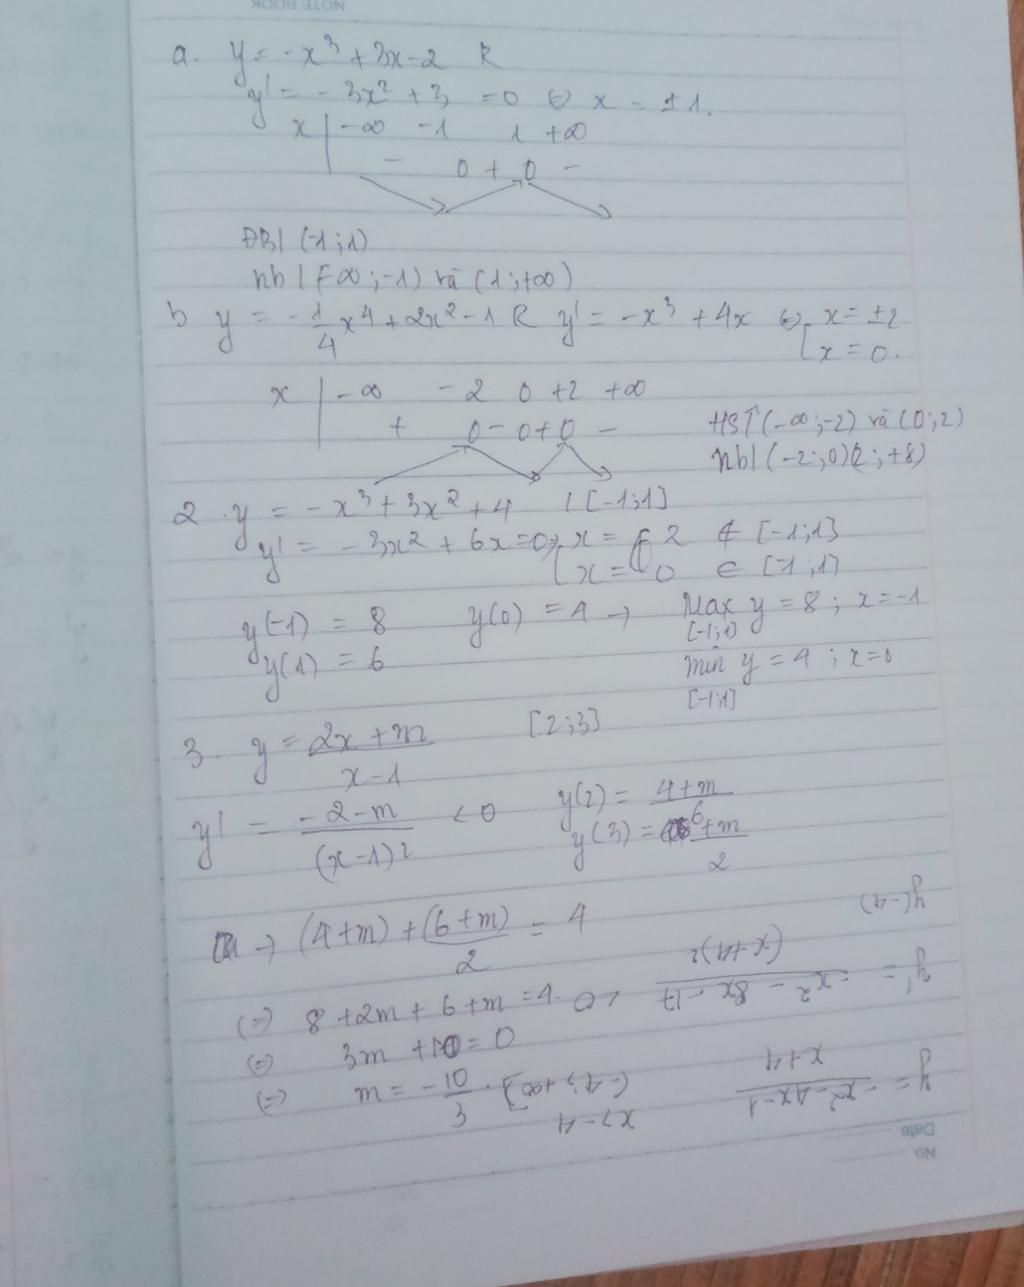 NOTE BOOK
a. y = -x³ + 3x - 2 R
y' = -3x² + 3 = 0 ⇔ x = ±1.
x | -∞ -1 1 +∞
- 0 + 0 -
ĐB | (-1;1)
nb | (-∞;-1) và (1;+∞)
b y = -1/4 x⁴ + 2x² - 1 R y' = -x³ + 4x ⇔ [ x = ±2
x = 0.
x | -∞ -2 0 +2 +∞
+ 0 - 0 + 0 -
HS↑ (-∞;-2) và (0;2)
nb | (-2;0)(2;+8)
2. y = -x³ + 3x² + 4 | [-1;1]
y' = -3x² + 6x = 0 ⇔ [ x = 2 ∉ [-1;1]
x = 0 ∈ [-1;1]
y(-1) = 8 y(0) = 4 → Max y = 8 ; x = -1
[-1;1]
y(1) = 6 min y = 4 ; x = 0.
[-1;1]
3. y = (2x + m)/(x - 1) [2;3]
y' = (-2 - m)/(x - 1)² < 0 y(2) = 4 + m
y(3) = (6 + m)/2
→ (4 + m) + (6 + m)/2 = 4
(=) 8 + 2m + 6 + m = 4.
(=) 3m + 10 = 0
(=) m = -10/3.
No.
Date
y = (-x² - 4x - 1)/(x + 4) x > -4
(-4; +∞]
y' = (-x² - 8x - 17)/(x + 4)² < 0
y(-4)